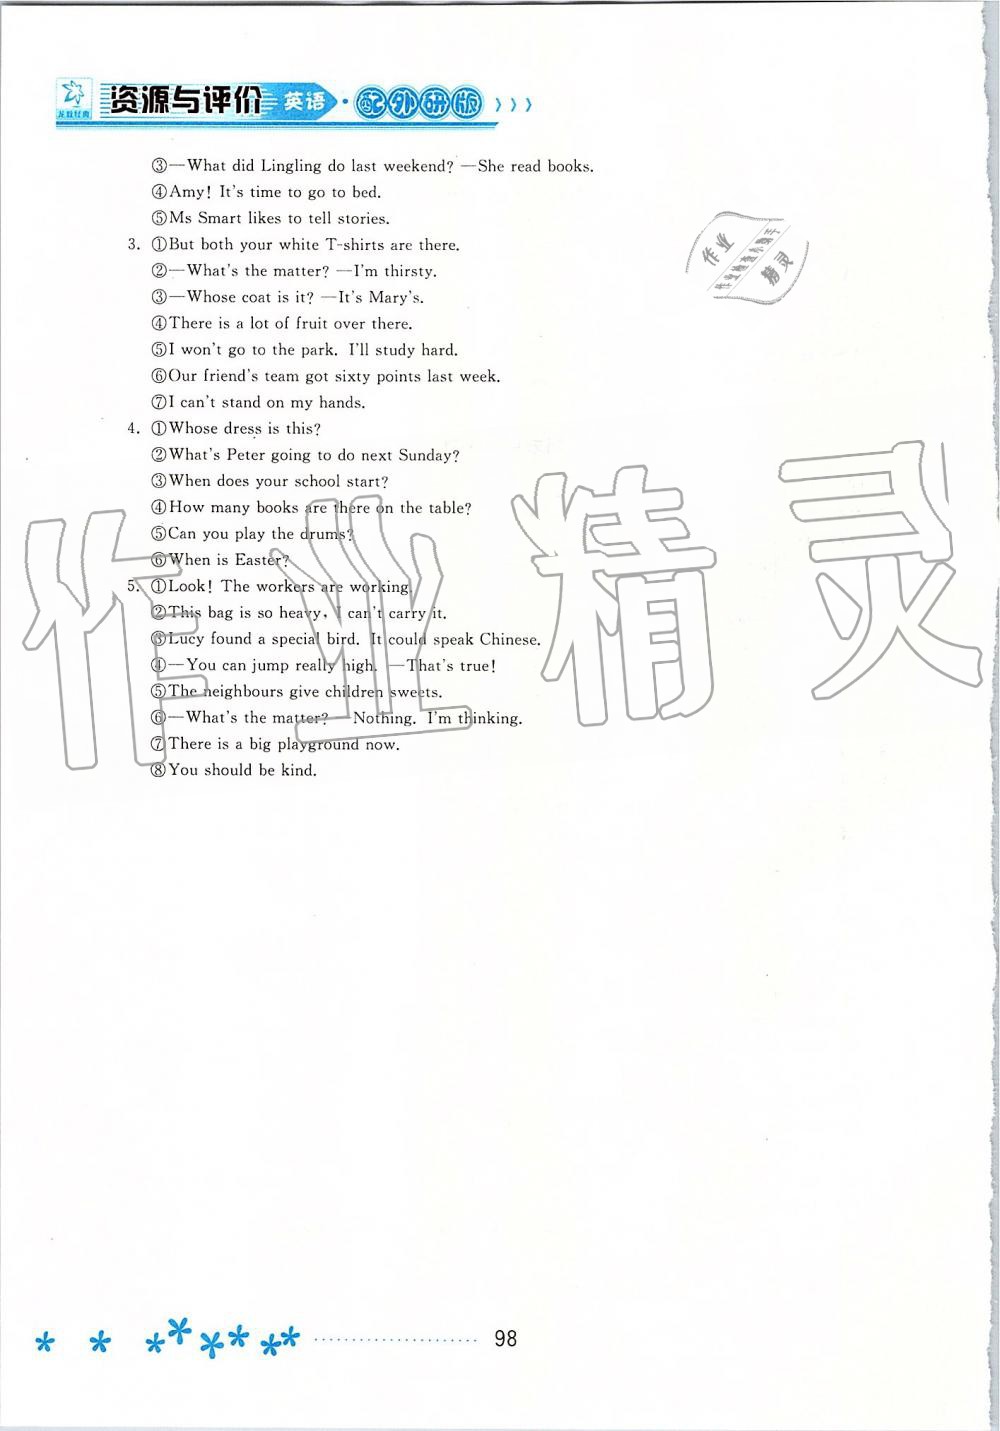 资源与评价 英语·配外研版 〉〉〉
③—What did Lingling do last weekend? —She read books.
④Amy! It's time to go to bed.
⑤Ms Smart likes to tell stories.
3. ①But both your white T-shirts are there.
②—What's the matter? —I'm thirsty.
③—Whose coat is it? —It's Mary's.
④There is a lot of fruit over there.
⑤I won't go to the park. I'll study hard.
⑥Our friend's team got sixty points last week.
⑦I can't stand on my hands.
4. ①Whose dress is this?
②What's Peter going to do next Sunday?
③When does your school start?
④How many books are there on the table?
⑤Can you play the drums?
⑥When is Easter?
5. ①Look! The workers are working.
②This bag is so heavy, I can't carry it.
③Lucy found a special bird. It could speak Chinese.
④—You can jump really high. —That's true!
⑤The neighbours give children sweets.
⑥—What's the matter? —Nothing. I'm thinking.
⑦There is a big playground now.
⑧You should be kind.
作业
精灵
作业精灵
98